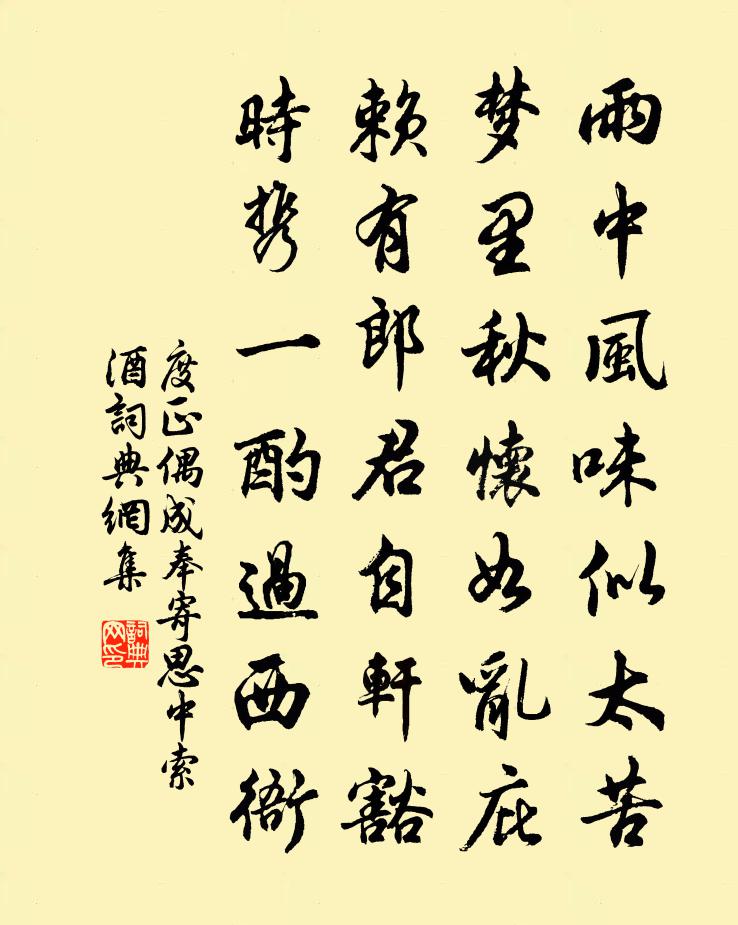 雨中風味似太苦
梦里秋懷如亂庇
賴有郎君自軒豁
時携一酌過西衙
度正偶成奉寄思中索
酒詞典網集
詞典网印